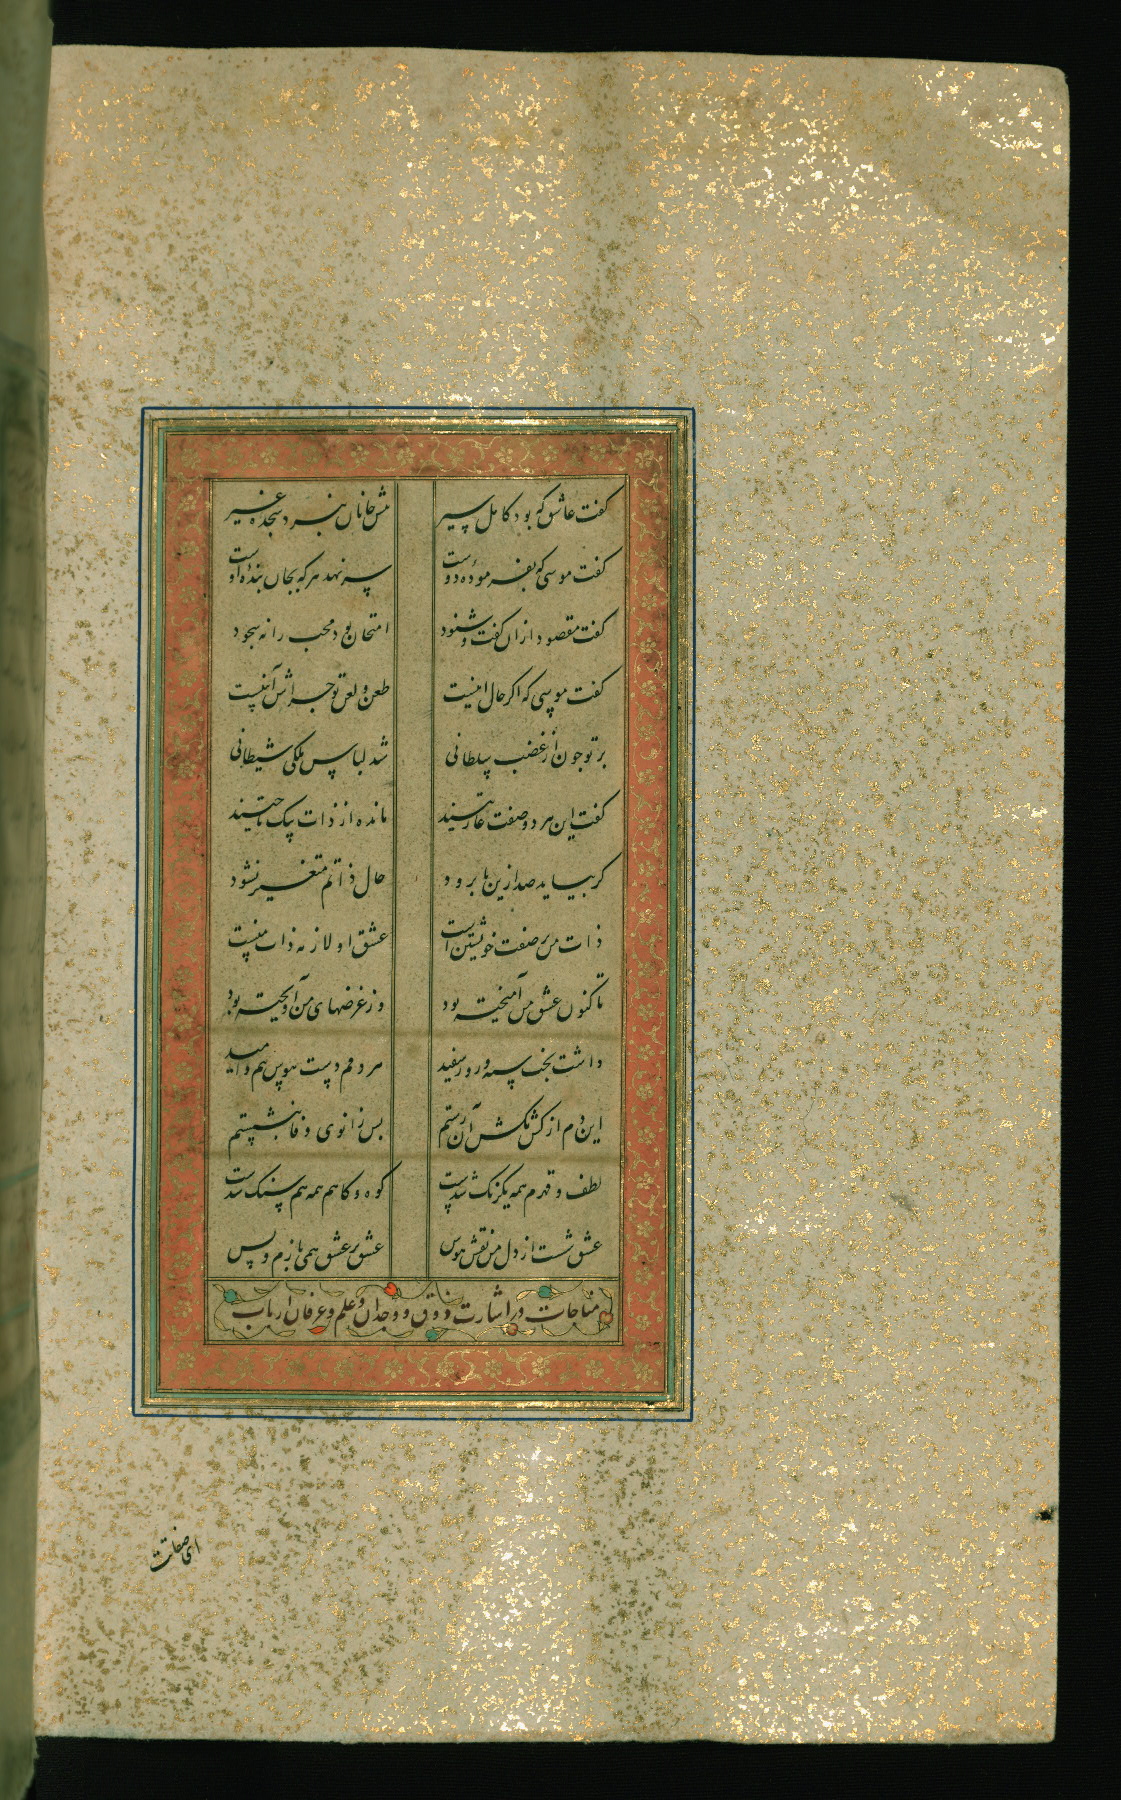 گفت عاشق که بود کامل سیر پیش جانان نبرد سجده غیر
گفت موسی که بفرموده دوست سر نهد هر که بجان بنده اوست
گفت مقصود ازان گفت و شنود امتحان بود محب را نه سجود
گفت موسی که اگر حال اینست لعن و طعن تو چرا آیینست
بر تو چون از غضب سلطانی شد لباس ملکی شیطانی
گفت این هر دو صفت عاریتند مانده از ذات بیک ناحیتند
گر بیاید صد ازین یا برود حال ذاتم متغیر نشود
ذات من بر صفت خویشتن است عشق او لازمه ذات منست
تاکنون عشق من آمیخته بود وز غرضهای من آویخته بود
داشت بخت سیه و روز سفید هر دمم دست خوش بیم و امید
این دم از کشمکش آن رستم پس زانوی وفا بنشستم
لطف و قهرم همه یکرنگ شدست کوه و کاهم همه همسنگ شدست
عشق شست از دل من نقش هوس عشق با عشق همی بازم و بس
مناجات در اشارت ذوق و وجدان و علم و عرفان ارباب
ای صفات